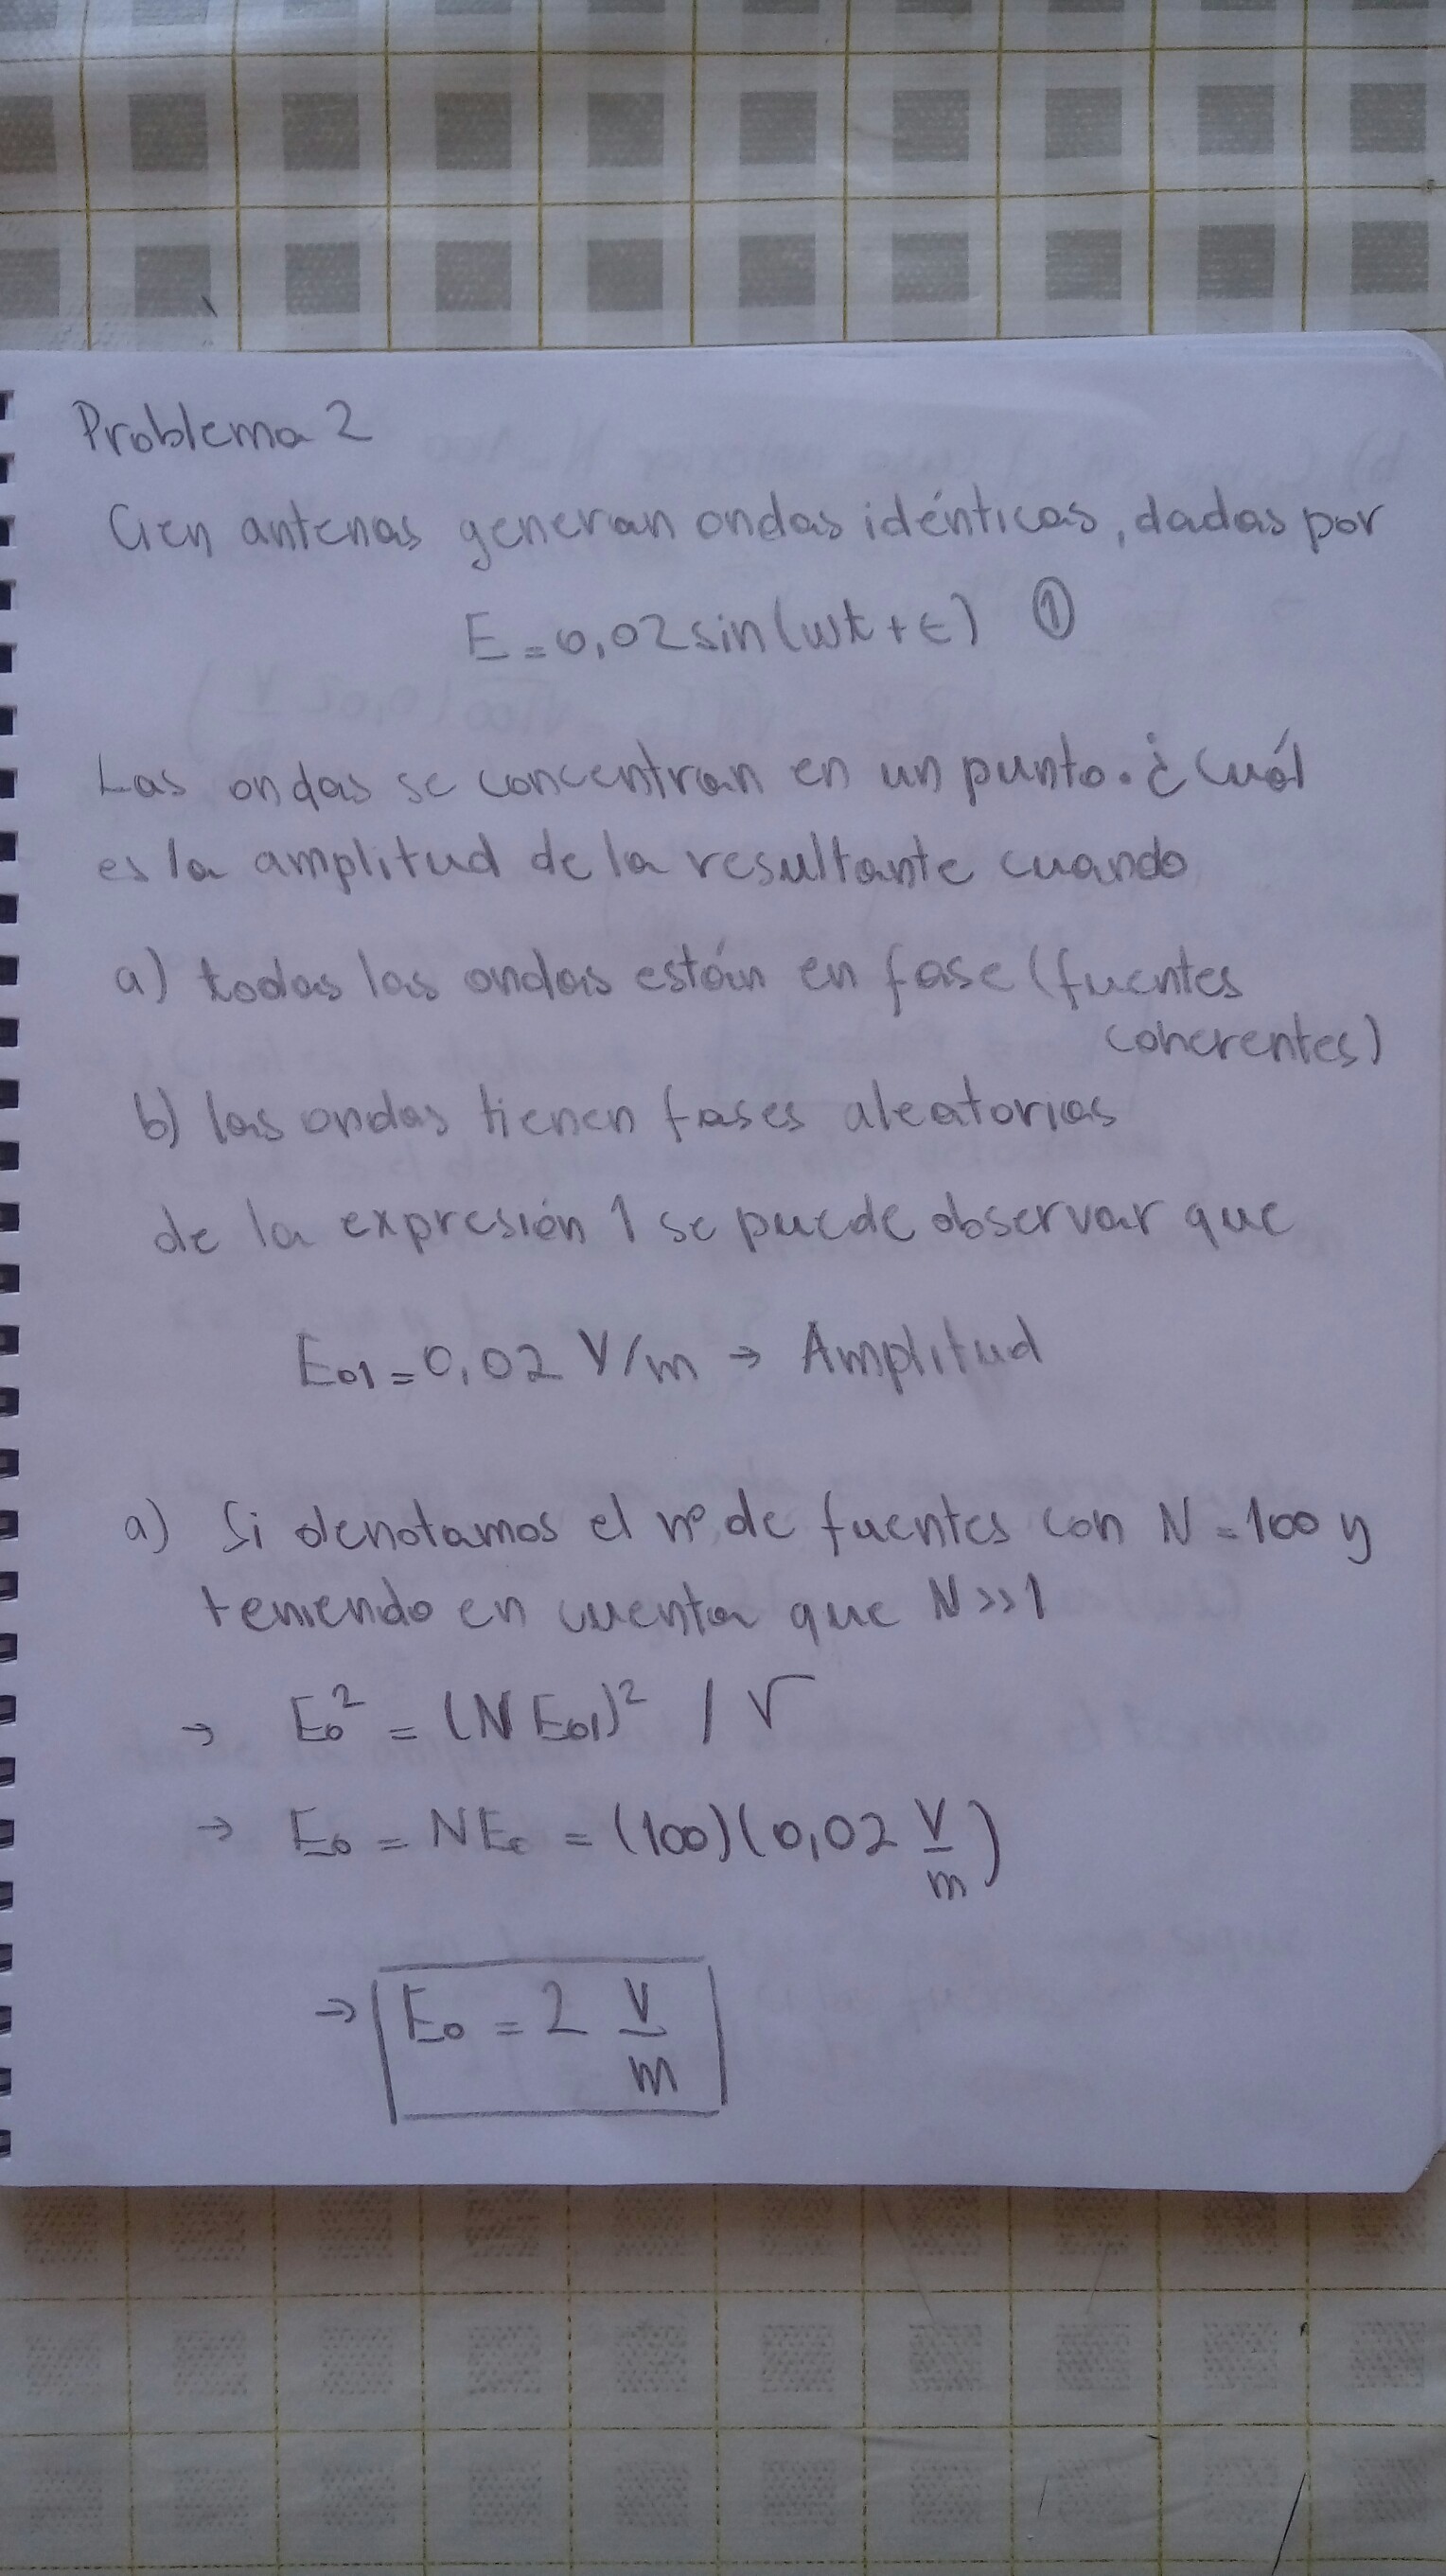 Problema 2
Cien antenas generan ondas idénticas, dadas por
E = 0,02 sin(wt + ε) ①
Las ondas se concentran en un punto. ¿Cuál
es la amplitud de la resultante cuando
a) todas las ondas están en fase (fuentes
coherentes)
b) las ondas tienen fases aleatorias
de la expresión 1 se puede observar que
E01 = 0,02 V/m → Amplitud
a) Si denotamos el nº de fuentes con N = 100 y
teniendo en cuenta que N >> 1
→ E0² = (N E01)² / √
→ E0 = NE0 = (100)(0,02 V/m)
→ E0 = 2 V/m